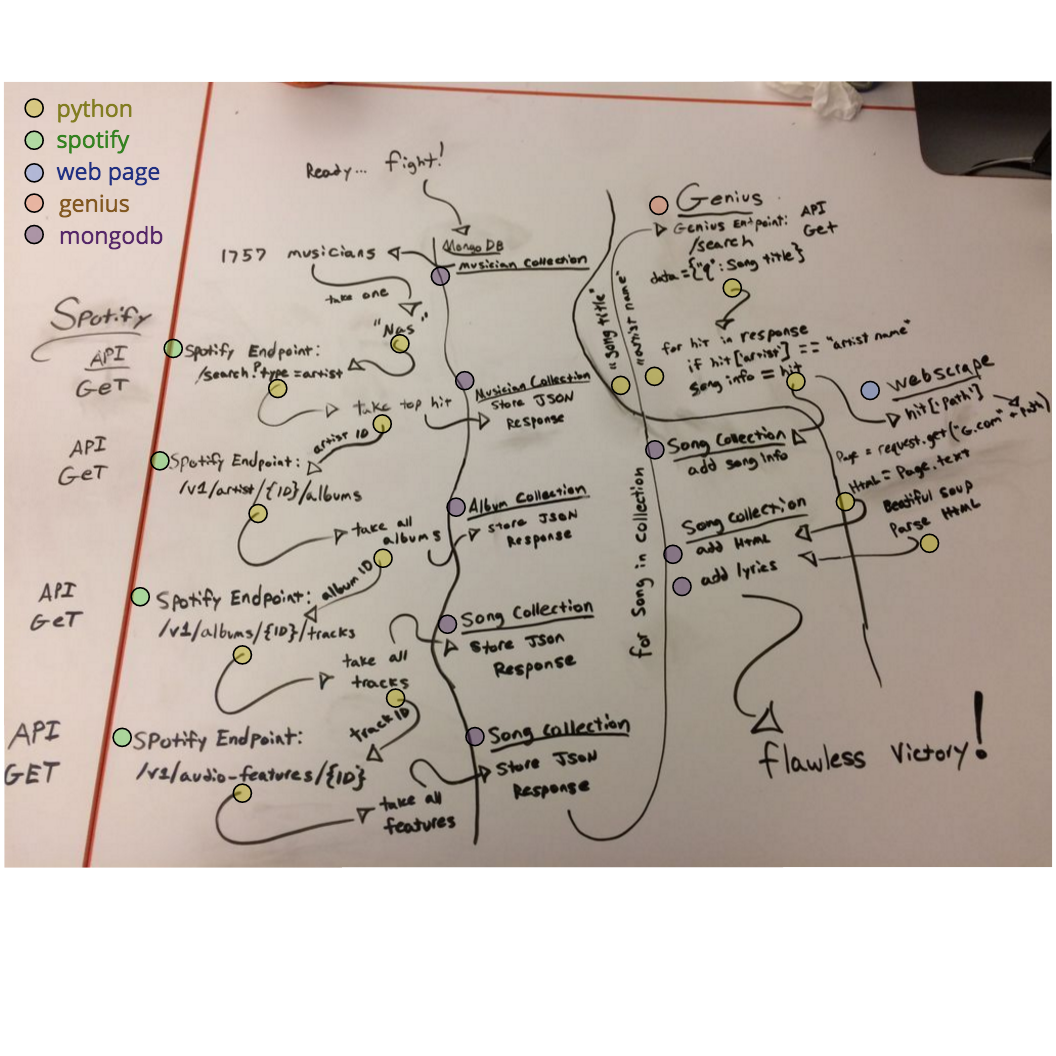 python
spotify
web page
genius
mongodb
Ready... fight!
Mongo DB
Musician Collection
1757 musicians
take one
"Nas"
Spotify
API
GeT
Spotify Endpoint:
/search?type=artist
take top hit
Musician Collection
Store JSON
Response
artist ID
API
GeT
Spotify Endpoint:
/v1/artist/{ID}/albums
take all
albums
Album Collection
Store JSON
Response
album ID
API
GeT
Spotify Endpoint:
/v1/albums/{ID}/tracks
take all
tracks
Song Collection
Store JSon
Response
track ID
API
GET
Spotify Endpoint:
/v1/audio-features/{ID}
take all
features
Song Collection
Store JSoN
Response
for Song in Collection
"Song title"
"artist name"
Genius
Genius Endpoint:
/search
API
Get
data={"q":Song title}
for hit in response
if hit[artist] == "artist name"
Song info = hit
Song Collection
add song info
webscrape
hit[path]
Page = request.get("G.com"+Path)
Html = Page.text
Beatiful Soup
Parse HTML
Song Collection
add HTML
add lyrics
flawless Victory!